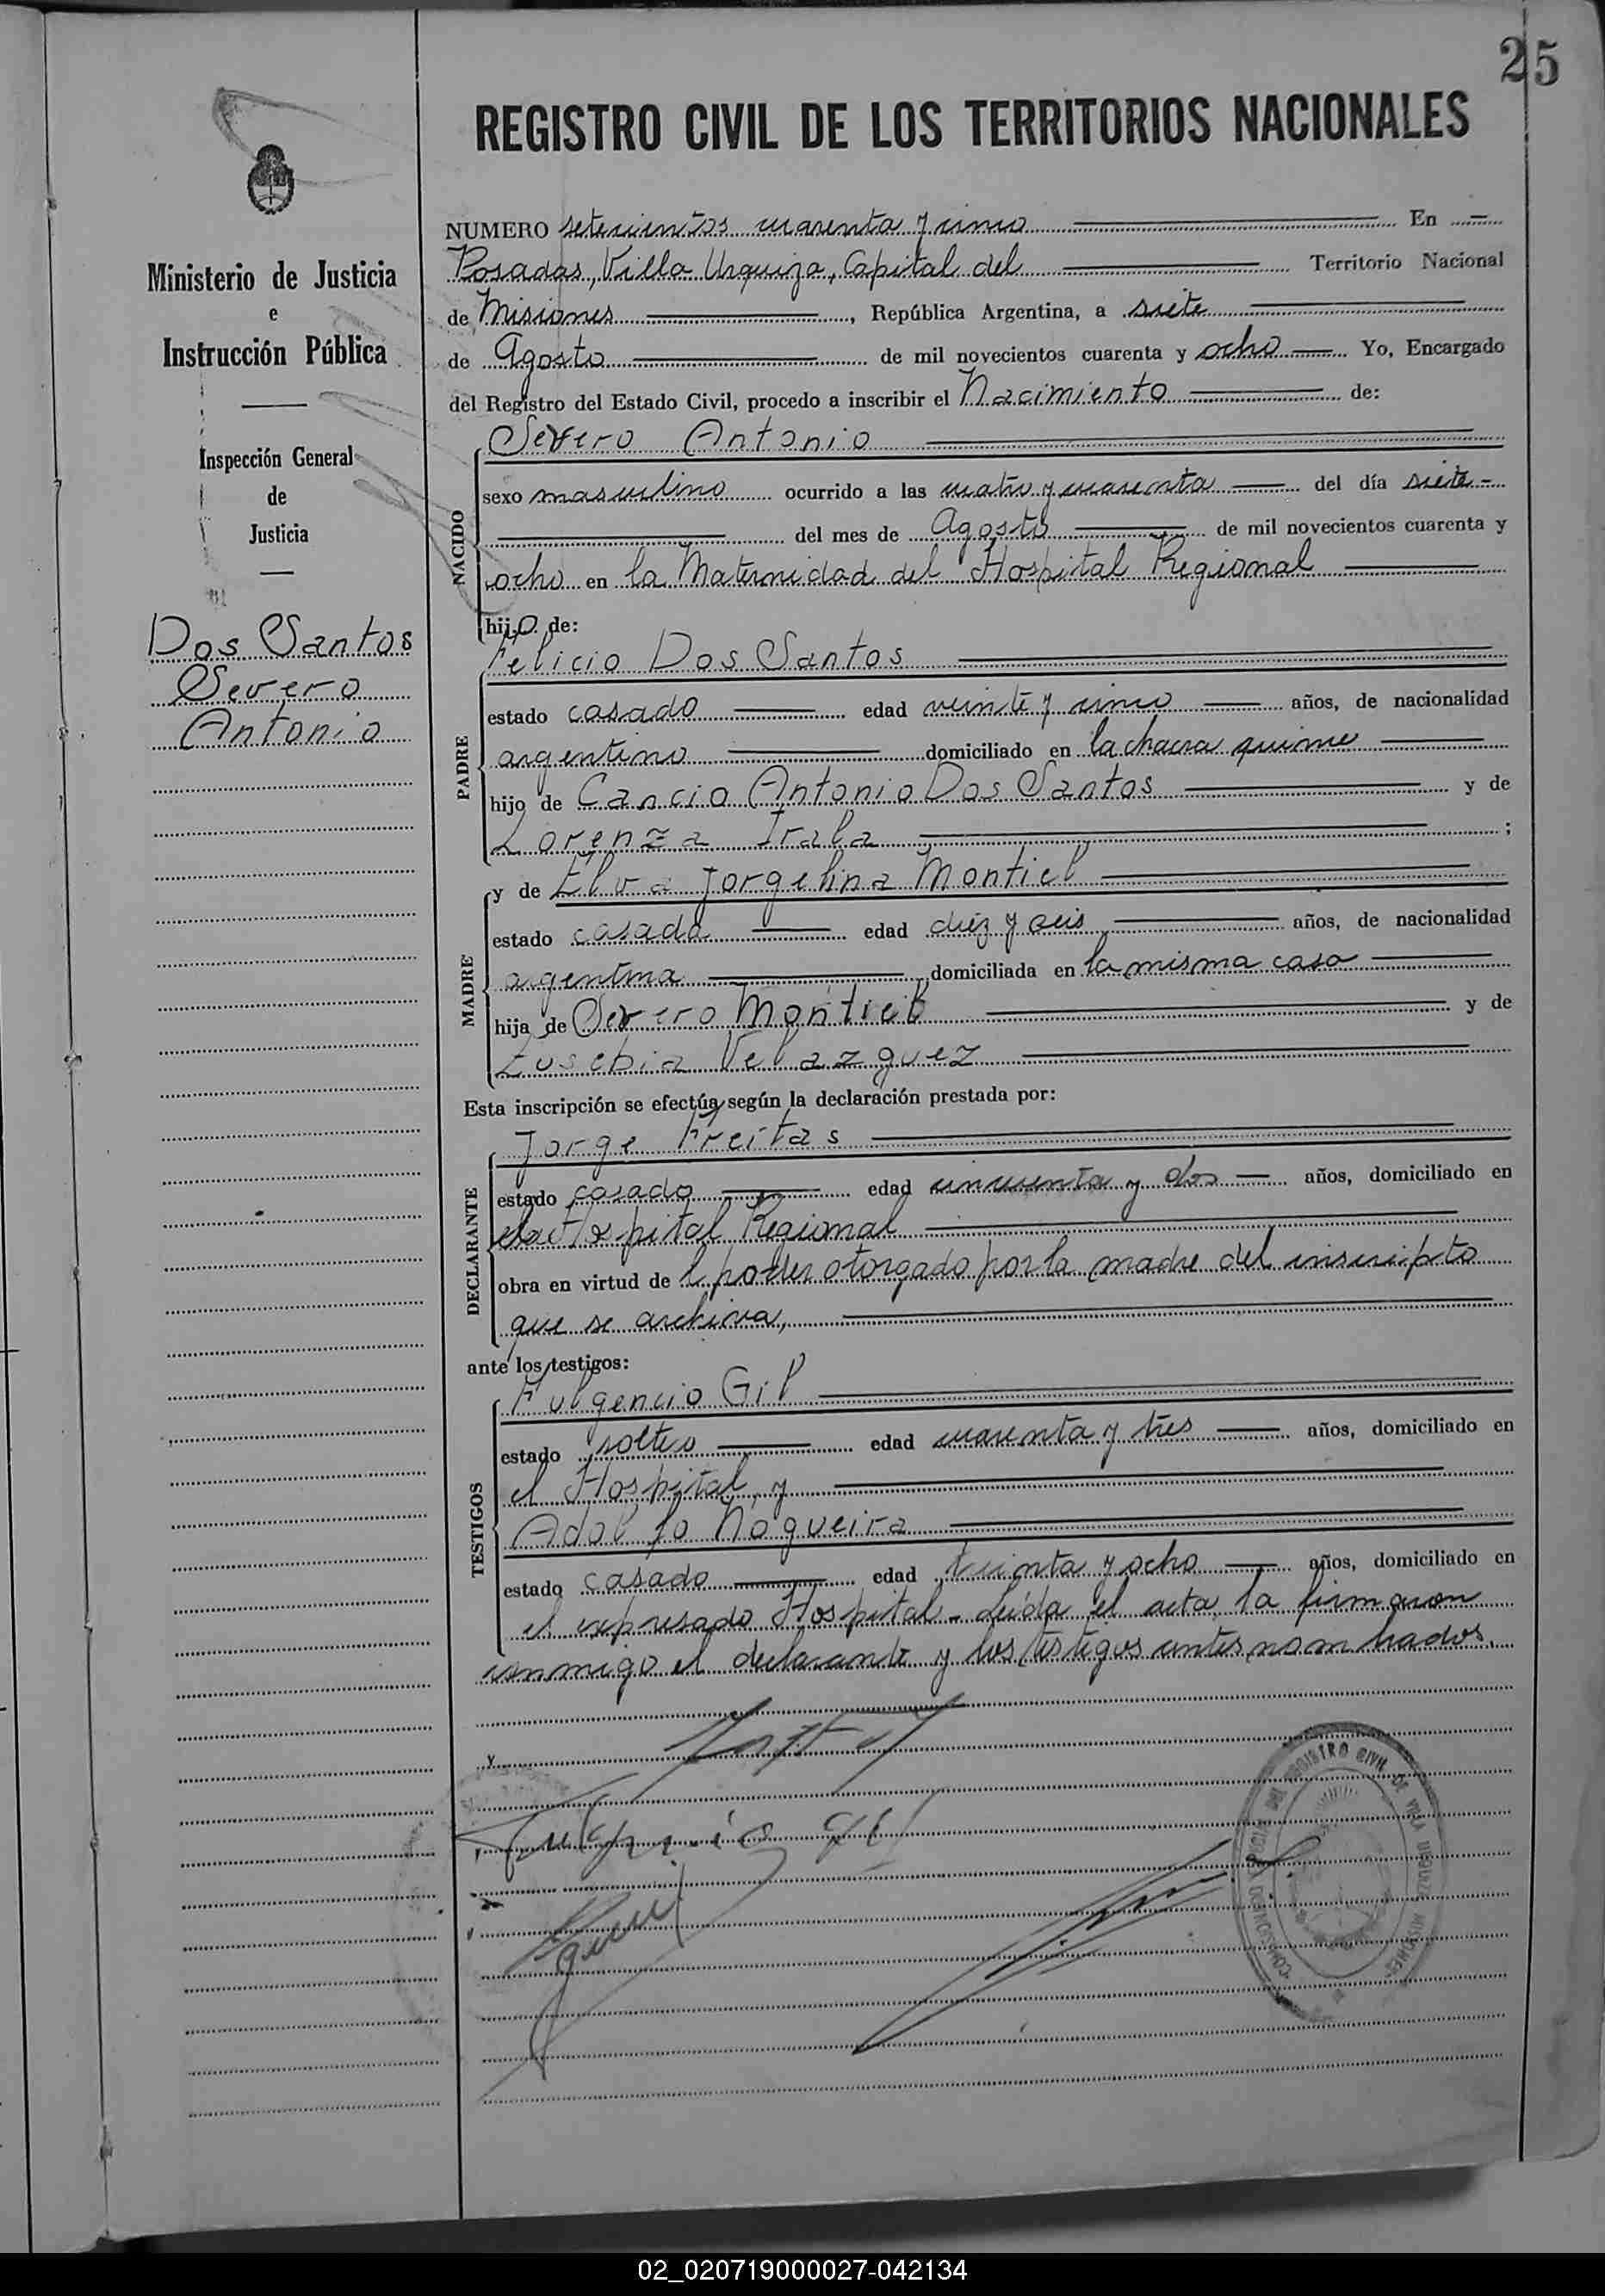 25
REGISTRO CIVIL DE LOS TERRITORIOS NACIONALES
Ministerio de Justicia
e
Instrucción Pública
Inspección General
de
Justicia
Dos Santos
Severo
Antonio
NUMERO setecientos cuarenta y cinco En
Posadas, Villa Urquiza, Capital del Territorio Nacional
de Misiones, República Argentina, a siete
de Agosto de mil novecientos cuarenta y ocho Yo, Encargado
del Registro del Estado Civil, procedo a inscribir el Nacimiento de:
Severo Antonio
NACIDO
sexo masculino ocurrido a las cuatro y cuarenta del día siete
del mes de Agosto de mil novecientos cuarenta y
ocho en la Maternidad del Hospital Regional
hijo de:
Felicio Dos Santos
PADRE
estado casado edad veinte y cinco años, de nacionalidad
argentino domiciliado en la chacra quince
hijo de Cancio Antonio Dos Santos y de
Lorenza Irala ;
y de Elva Jorgelina Montiel
MADRE
estado casada edad diez y seis años, de nacionalidad
argentina domiciliada en la misma casa
hija de Severo Montiel y de
Eusebia Velazquez
Esta inscripción se efectúa según la declaración prestada por:
Jorge Freitas
DECLARANTE
estado casado edad cincuenta y dos años, domiciliado en
Hospital Regional
obra en virtud de l poder otorgado por la madre del inscripto
que se archiva,
ante los testigos:
Fulgencio Gil
TESTIGOS
estado soltero edad cuarenta y tres años, domiciliado en
el Hospital, y
Adolfo Nogueira
estado casado edad treinta y ocho años, domiciliado en
el expresado Hospital - Leída el acta, la firmaron
conmigo el declarante y los testigos antes nombrados.
Fulgencio Gil
REGISTRO CIVIL DE VILLA URQUIZA MISIONES
02_020719000027-042134